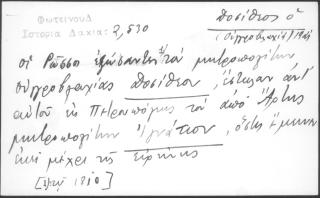 Φωτεινοῦ Δ
Ἱστορία Δακία: 3,530
Δοσίθεος ὁ
(Οὑγγροβλαχία)
οἱ Ρῶσσοι ἐξώσαντες τὸν μητροπολίτην
οὑγγροβλαχίας Δοσίθεον, ἔστησαν ἀντ'
αὐτοῦ εἰς Πετρουπόλεως τὸν ἀπὸ Ἄρτης
μητροπολίτην Ἰγνάτιον, ὅστις ἔμεινεν
ἐκεῖ μέχρι τῆς εἰρήνης
1810]